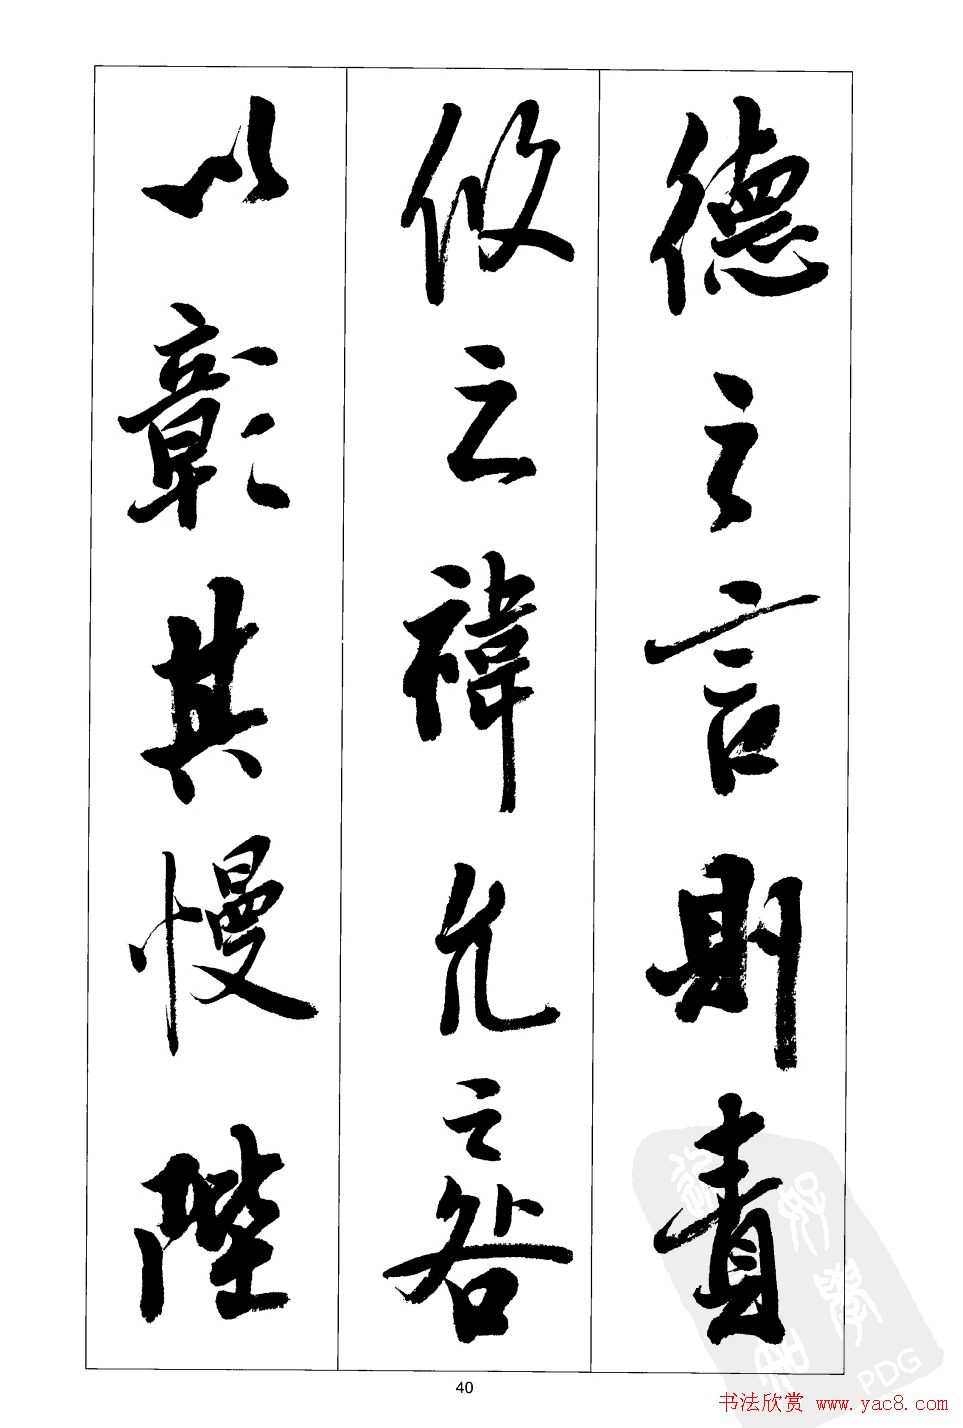 德之言則責
攸之禕允之咎
以彰其慢陛
40
PDG
书法欣赏 www.yac8.com